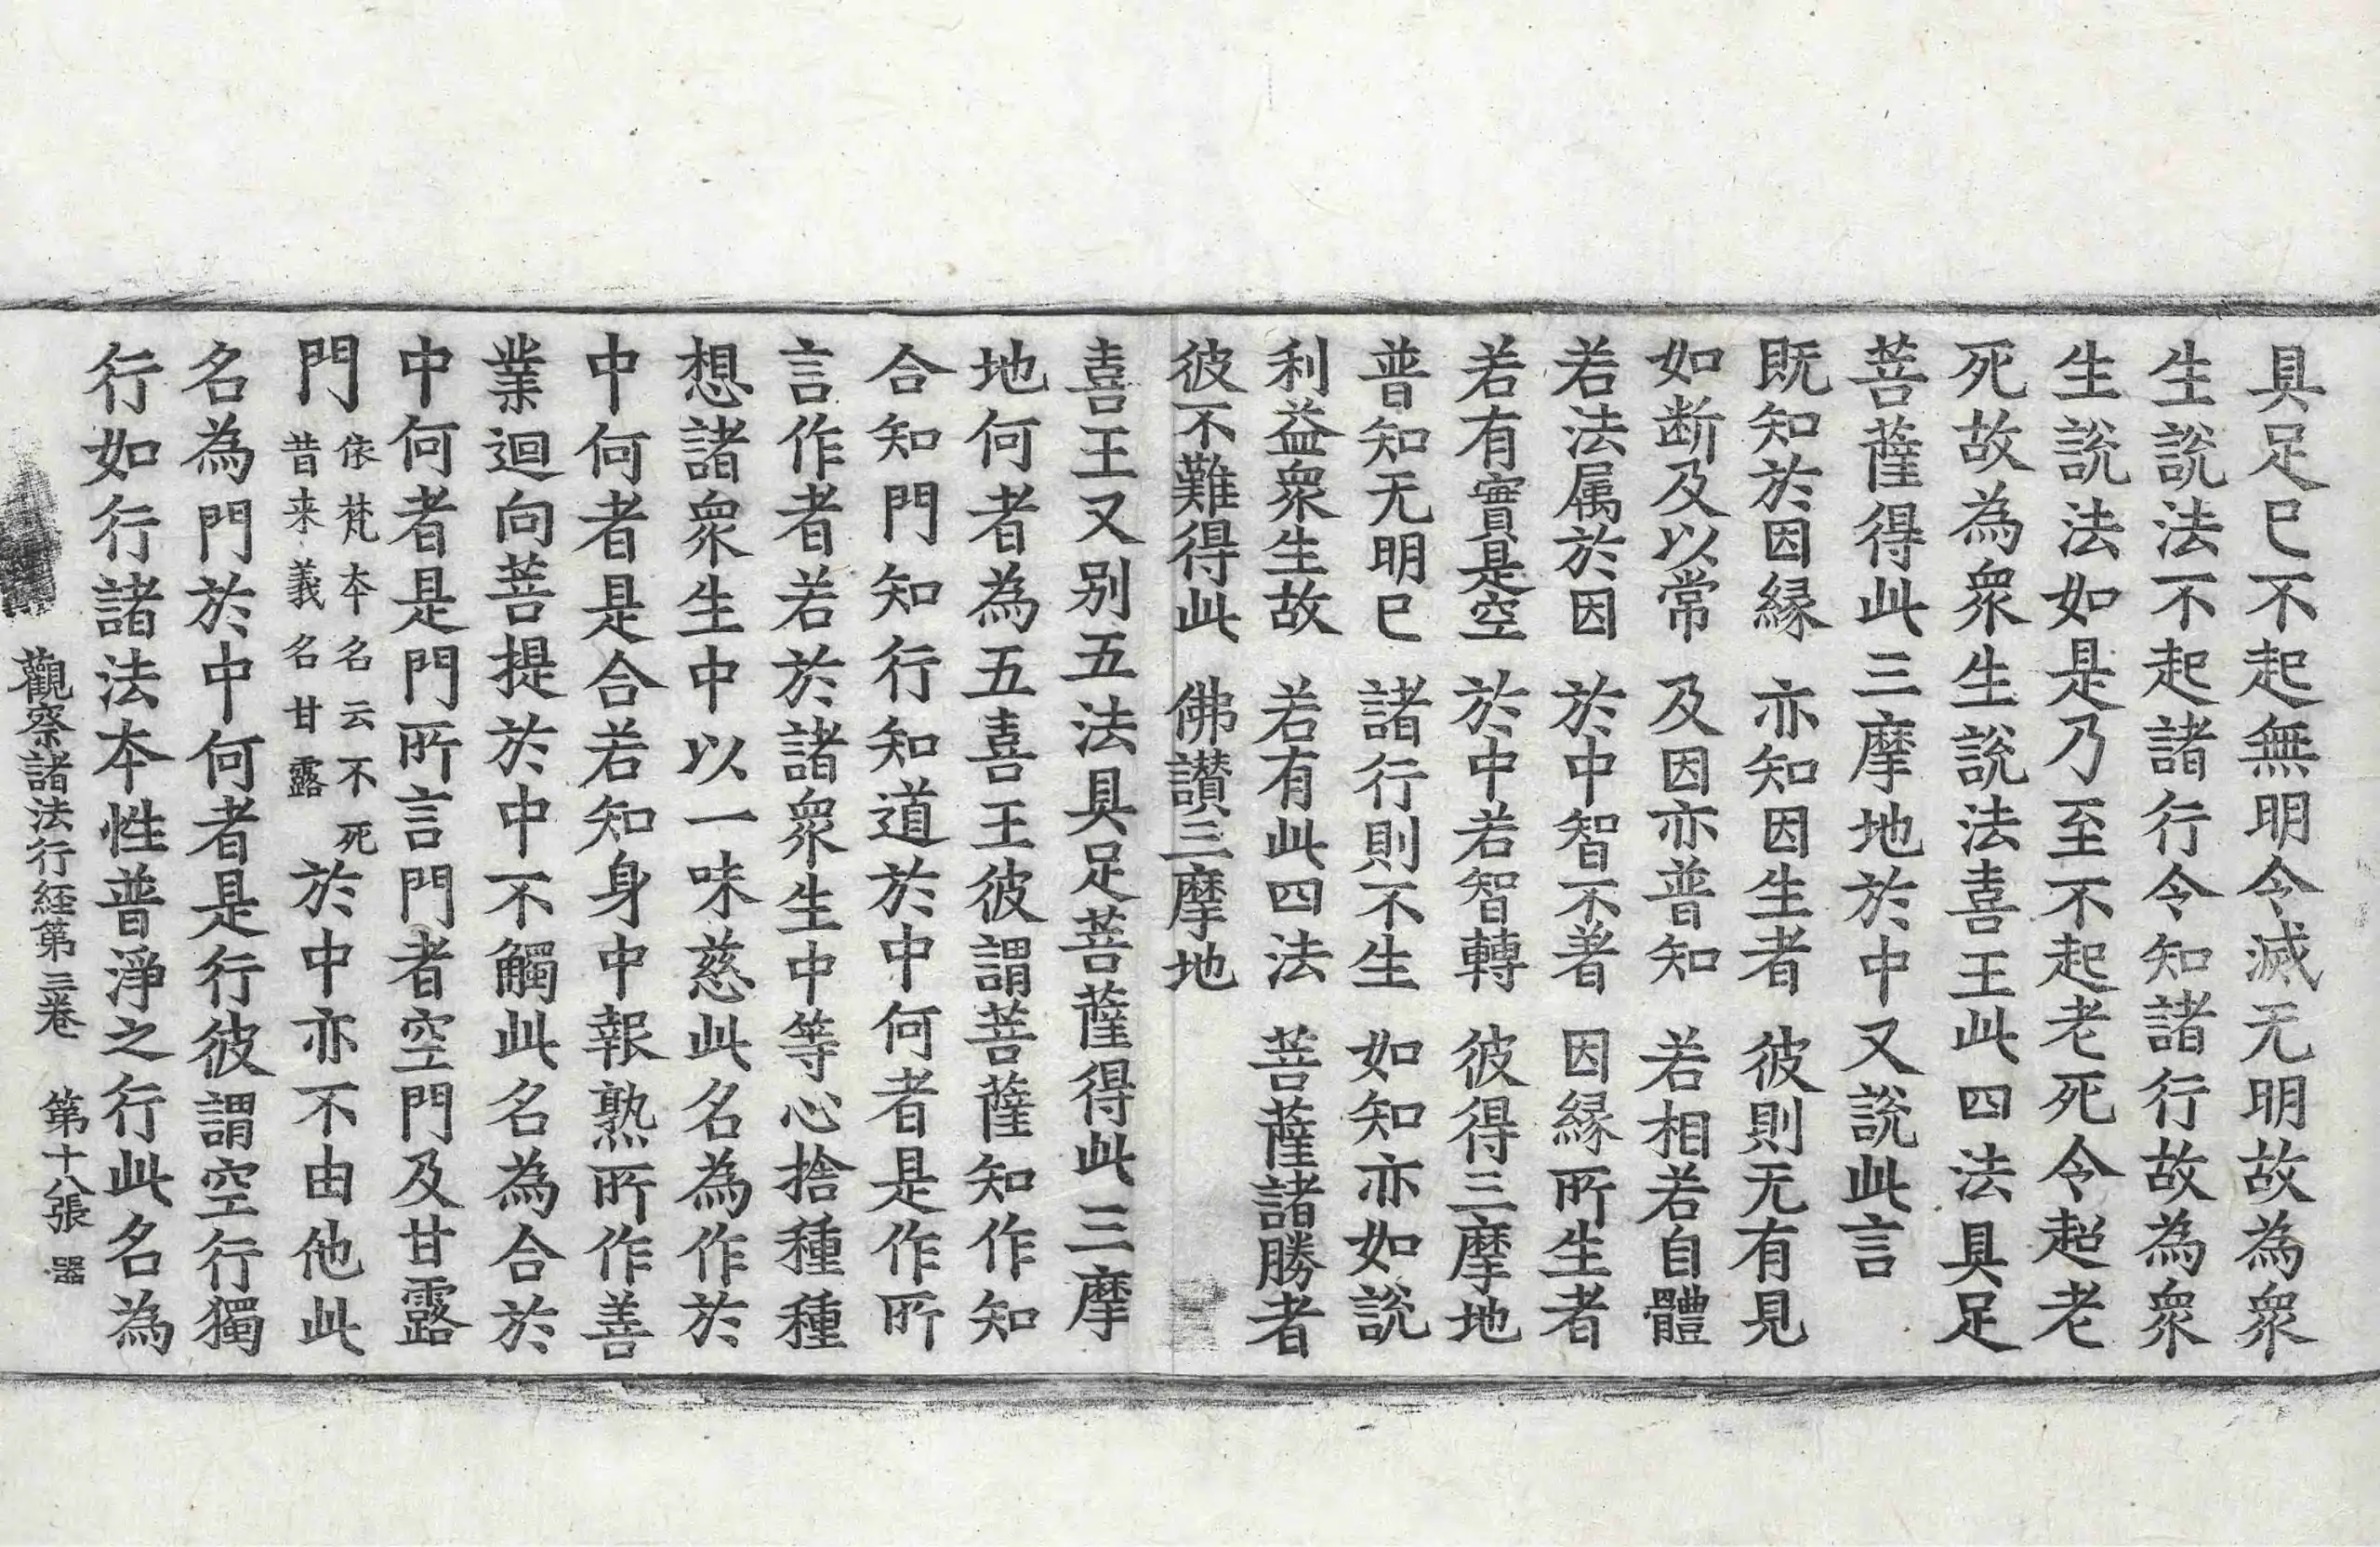 具足已不起無明令滅无明故為衆
生說法不起諸行令知諸行故為衆
生說法如是乃至不起老死令超老
死故為衆生說法喜王此四法具足
菩薩得此三摩地於中又說此言
既知於因緣　亦知因生者　彼則无有見
如断及以常　及因亦普知　若相若自體
若法属於因　於中智不著　因緣所生者
若有實是空　於中若智轉　彼得三摩地
普知无明已　諸行則不生　如知亦如說
利益衆生故　若有此四法　菩薩諸勝者
彼不難得此　佛讚三摩地
喜王又别五法具足菩薩得此三摩
地何者為五喜王彼謂菩薩知作知
合知門知行知道於中何者是作所
言作者若於諸衆生中等心捨種種
想諸衆生中以一味慈此名為作於
中何者是合若知身中報熟所作善
業迴向菩提於中不觸此名為合於
中何者是門所言門者空門及甘露
門依梵本名云不死昔来義名甘露於中亦不由他此
名為門於中何者是行彼謂空行獨
行如行諸法本性普淨之行此名為
觀察諸法行経第三卷　第十八張　器